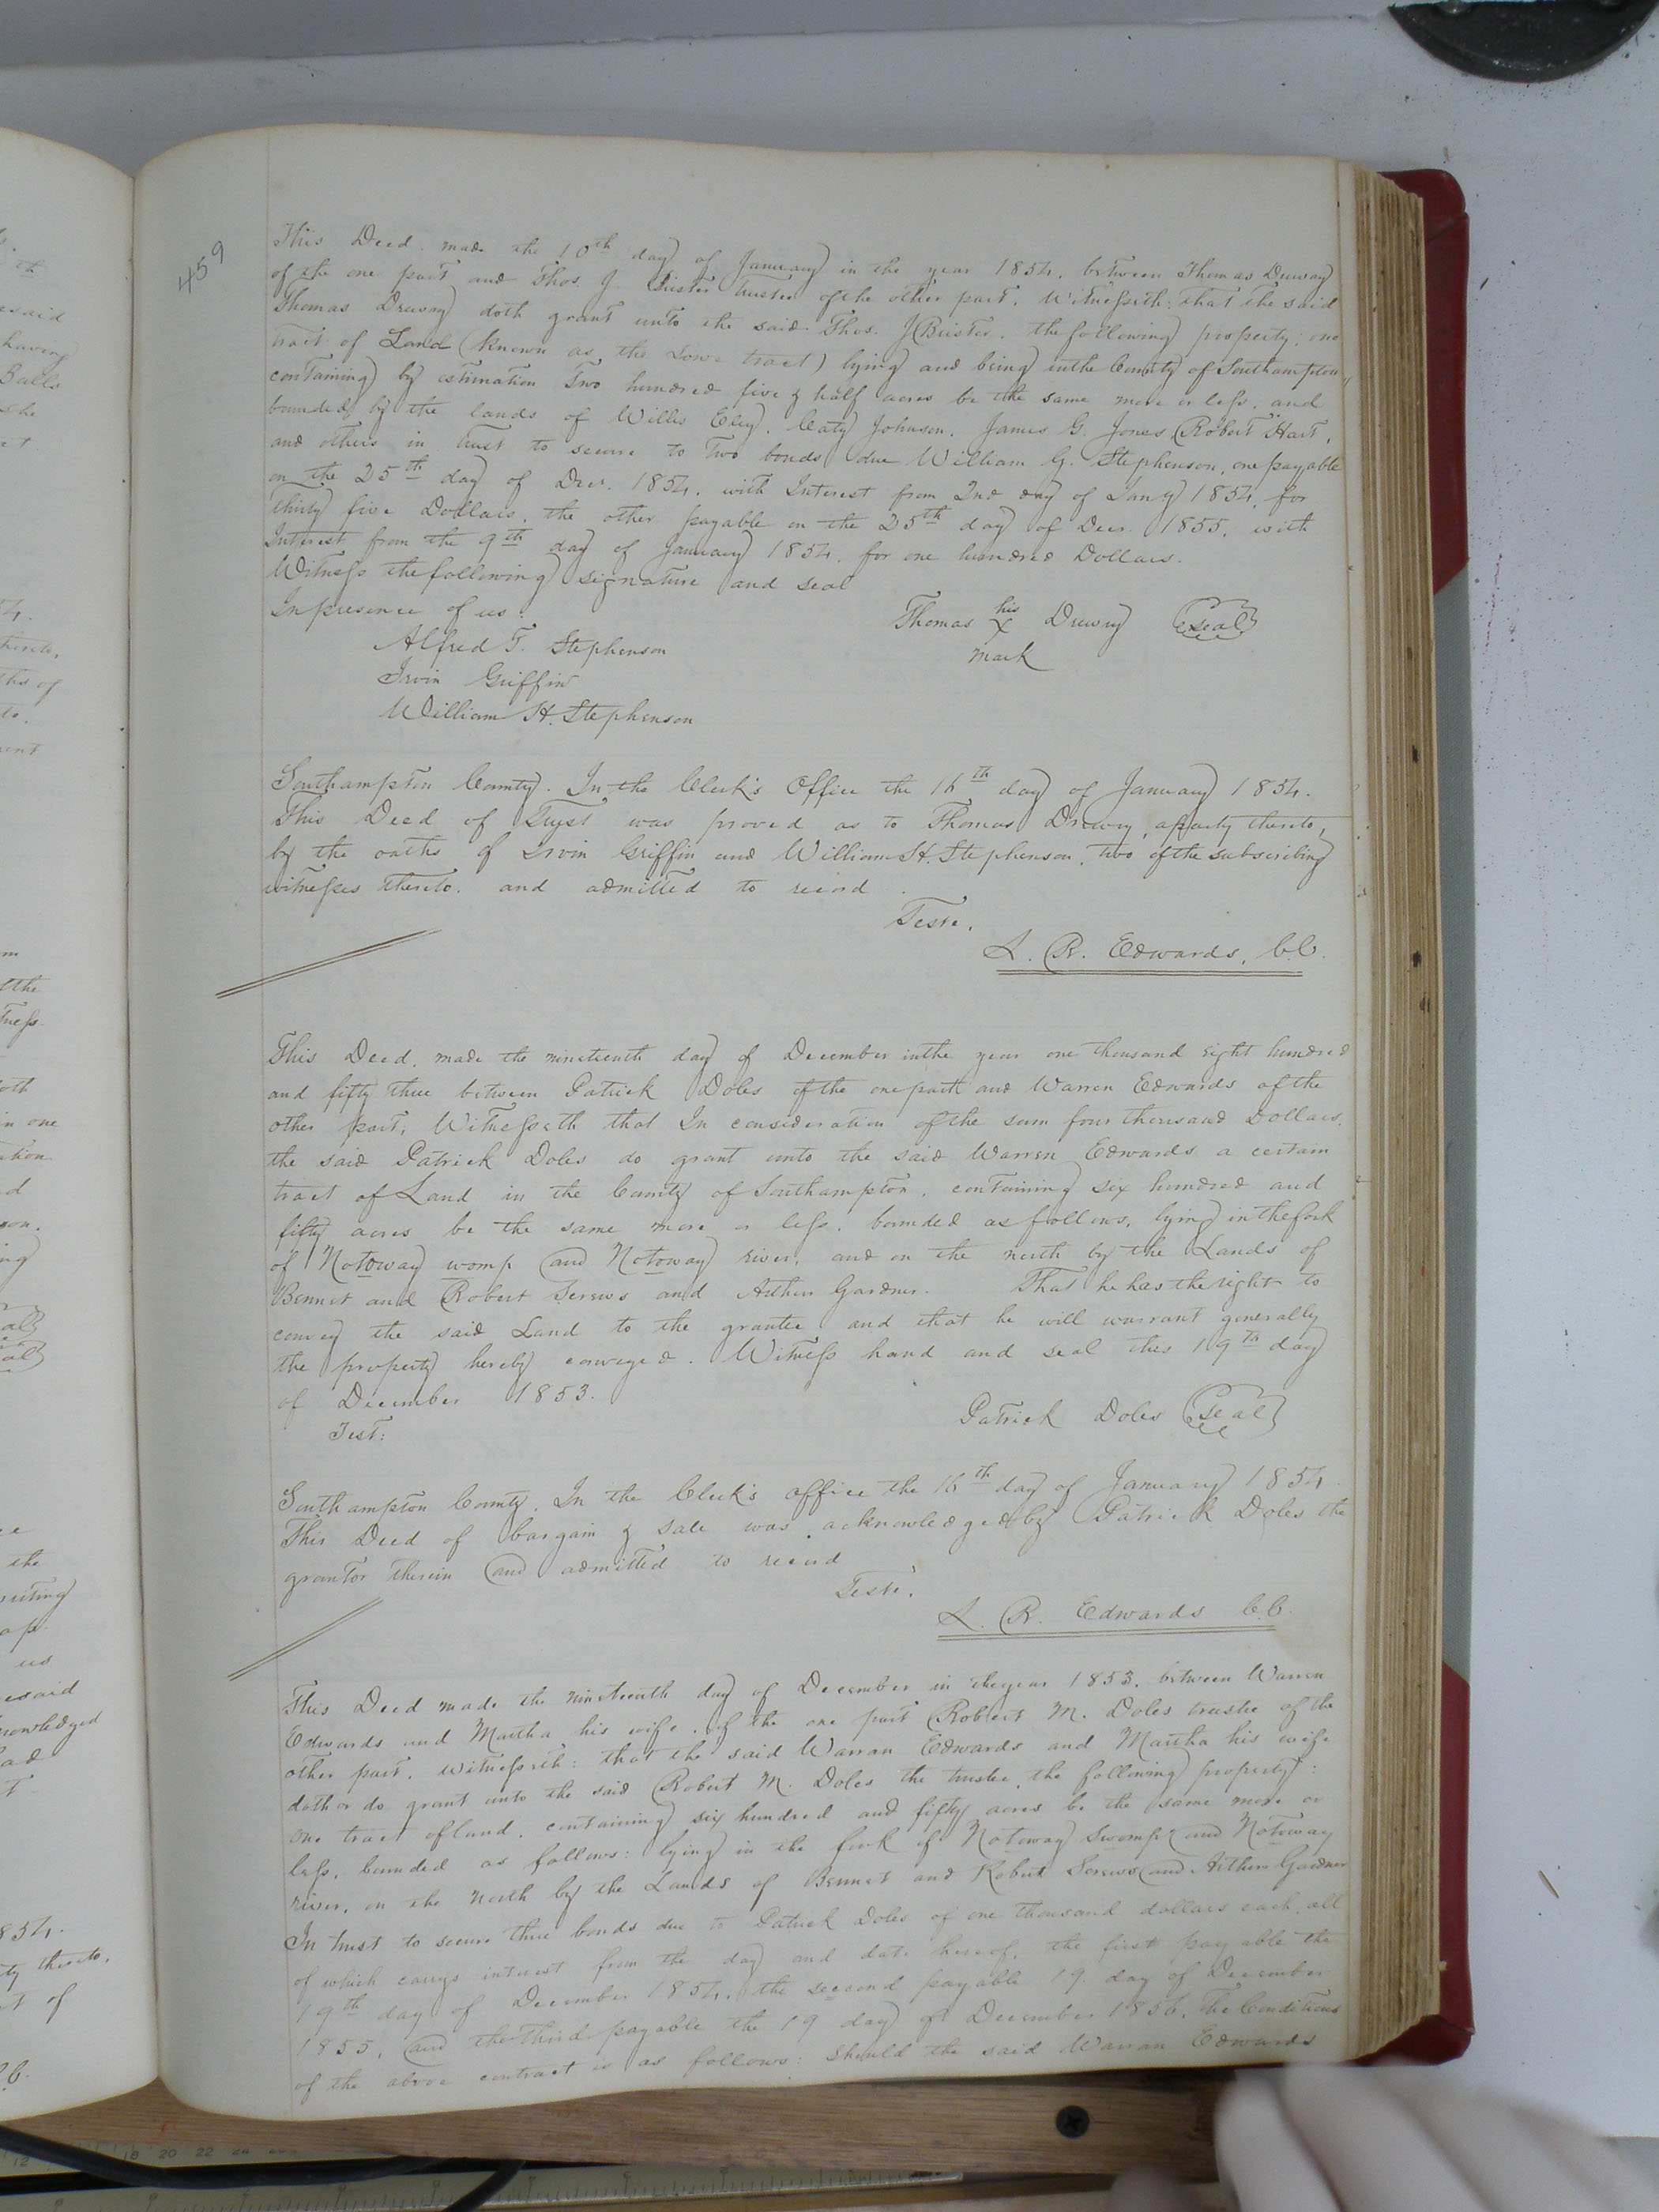 459
This Deed made the 10th day of January in the year 1854. between Thomas Drewry
of the one part and Thos. J. Brister trustee of the other part. Witnesseth: that the said
Thomas Drewry doth grant unto the said Thos. J Brister. the following property; one
tract of Land (known as the Lowe tract) lying and being in the County of Southampton,
containing by estimation Two hundred five & half acres be the same more or less. and
bounded by the lands of Willis Eley, Caty Johnson. James G. Jones Robert Hart,
and others in trust to secure to Two bonds due William G. Stephenson, one payable
on the 25th day of Decr. 1854. with Interest from 2nd day of Jany 1854, for
thirty five Dollars, the other payable on the 25th day of Decr. 1855, with
Interest from the 9th day of January 1854. for one hundred Dollars.
Witness the following signature and seal
In presence of us:
Thomas his X mark Drewry (seal)
Alfred T. Stephenson
Irvin Griffin
William H. Stephenson
Southampton County. In the Clerk's Office the 16th day of January 1854.
This Deed of Trust was proved as to Thomas Drewry, a party thereto,
by the oaths of Irvin Griffin and William H. Stephenson, two of the subscribing
witnesses thereto. and admitted to record.
Teste.
L. R. Edwards, C.C.
This Deed. made the nineteenth day of December in the year one thousand eight hundred
and fifty three between Patrick Doles of the one part and Warren Edwards of the
other part, Witnesseth that In consideration of the sum four thousand Dollars.
the said Patrick Doles do grant unto the said Warren Edwards a certain
tract of Land in the County of Southampton, containing six hundred and
fifty acres be the same more or less. bounded as follows, lying in the fork
of Notoway womp and Notoway river, and on the north by the Lands of
Bennet and Robert Screws and Arthur Gardner. That he has the right to
convey the said Land to the grantee and that he will warrant generally
the property hereby conveyed. Witness hand and seal this 19th day
of December 1853.
Test:
Patrick Doles (seal)
Southampton County. In the Clerk's office the 16th day of January 1854
This Deed of bargain & sale was acknowledged by Patrick Doles the
grantor therein and admitted to record
Teste.
L. R. Edwards C.C.
This Deed made the nineteenth day of December in the year 1853. between Warren
Edwards and Martha his wife. of the one part Robert M. Doles trustee of the
other part. Witnesseth: that the said Warran Edwards and Martha his wife
doth or do grant unto the said Robert M. Doles the trustee, the following property:
one tract of land. containing six hundred and fifty acres be the same more or
less, bounded as follows: lying in the fork of Notoway Swomp and Notoway
river, on the North by the Lands of Bennet and Robert Screws and Arthur Gardner
In trust to secure three bonds due to Patrick Doles of one thousand dollars each, all
of which carrys interest from the day and date hereof, the first payable the
19th day of December 1854, the second payable 19 day of December
1855, and the third payable the 19 day of December 1856. The Conditions
of the above contract is as follows: should the said Warran Edwards